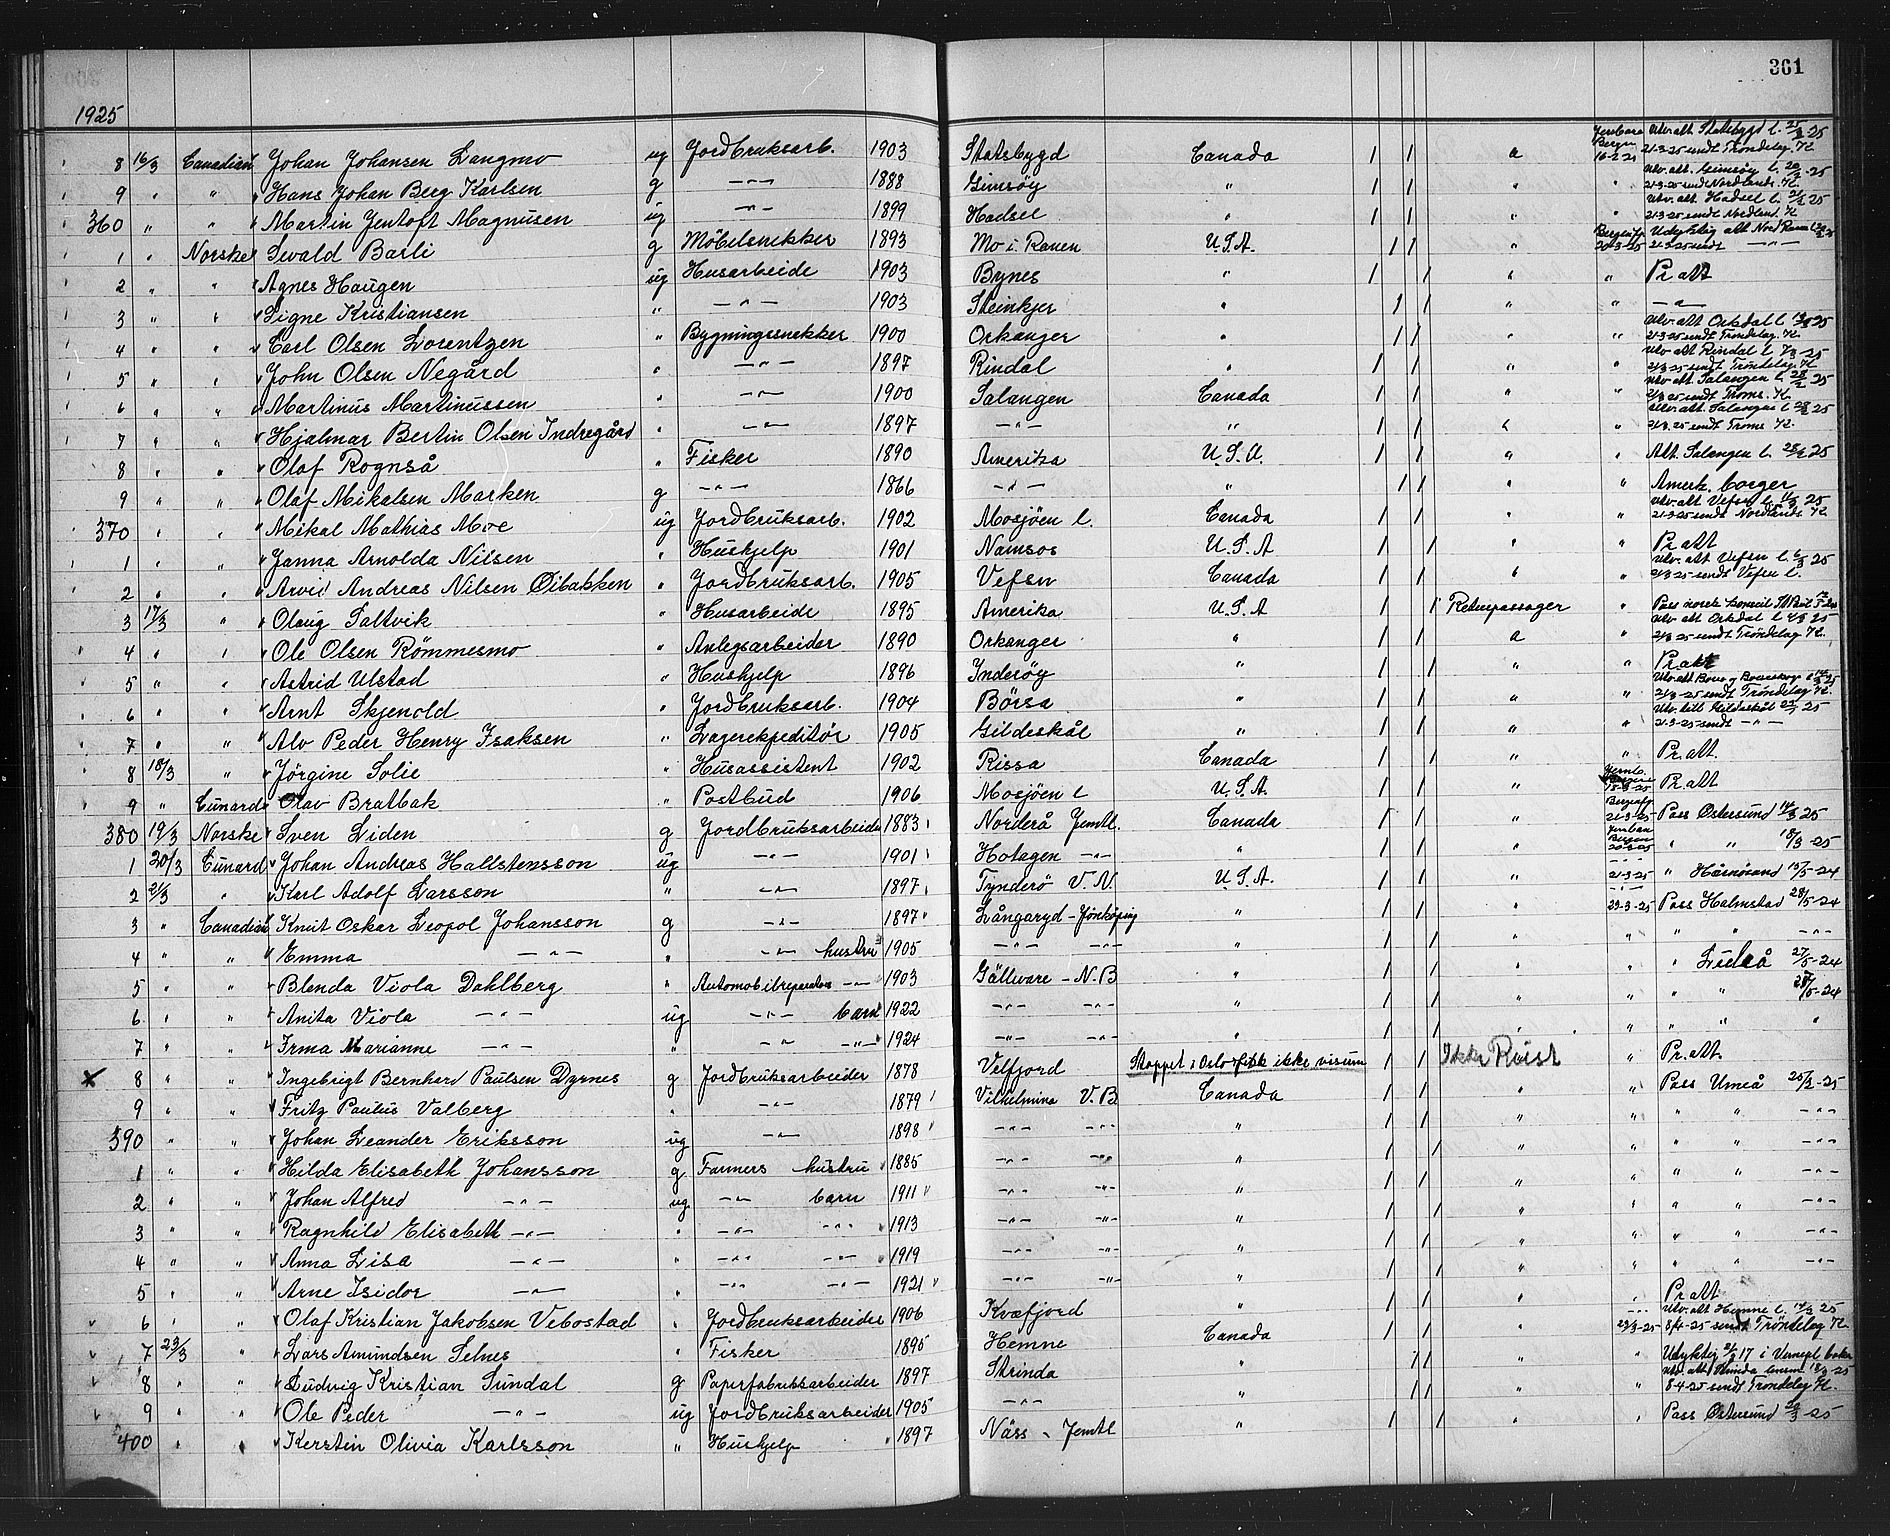 361
1925
8 16/3 Canadian Johan Johansen Langmo ug Jordbruksarb. 1903 Statsbygd Canada 1 1 a Jernbane Bergen Utv. att Statsbygd l. 21-3-25 sendt Trøndelag. K.
9 " " Hans Johan Berg Karlsen g -"- 1888 Gimsøy " 1 1 " " Utv. att. Gimsøy l. 21-3-25 sendt Nordlands. K.
360 " " Martin Jentoft Magnusen ug -"- 1899 Hadsel " 1 1 " " Utv. att Hadsel l. 21-3-25 sendt Nordland. K
1 " Norske Sevald Barli g Møbelsnekker 1893 Mo i Ranen U.S.A. 1 1 " 20-3-25 21-3-25 sendt -"-
2 " " Agnes Haugen ug Husarbeide 1903 Bynes " 1 1 " " Pr att
3 " " Signe Kristiansen " -"- 1903 Steinkjer " 1 1 " " -"-
4 " " Carl Olsen Lorentzen " Bygningssnekker 1900 Orkanger " 1 1 " " Utv. att Orkdal l. 21-3-25 sendt Trøndelag. K
5 " " John Olsen Negård " -"- 1897 Rindal " 1 1 " " Utv att Rindal l. 7/3-25 21/3 25 sendt Trøndelag. K
6 " " Martinus Martinussen " -"- 1900 Salangen Canada 1 1 " " Utv att. Salangen l. 28/2 25 21/3 25 sendt Troms. K.
7 " " Hjalmar Bertin Olsen Indregård " -"- 1897 -"- " 1 1 " " Utv. att. Salangen l 21/3. 25 sendt Troms K.
8 " " Olaf Rognså " Fisker 1890 Amerika U.S.A. 1 1 " " Att. Salangen l. 28/2 25
9 " " Olaf Mikalsen Marken g -"- 1866 -"- " 1 1 " " Amerk. borger
370 " " Mikal Mathias Moe ug Jordbruksarb. 1902 Mosjøen l. Canada 1 1 " " Utv. att Vefsn l. 21-3-25 sendt Nordlands K.
1 " " Janna Arnolda Nilsen " Hushjelp 1901 Namsos U.S.A 1 1 " " Pr att
2 " " Arvid Andreas Nilsen Øibakken " Jordbruksarb. 1905 Vefsn Canada 1 1 " " Utv. att Vefsn l. 6/3 25 21/3-25 sendt Vefsn l.
3 17/3 " Olaug Saltvik " Husarbeide 1895 Amerika U.S.A 1 1 Returpassager " Pass norsk konsul St Paul
4 " " Ole Olsen Rømmesmo " Anlegsarbeider 1890 Orkanger " 1 1 a " Utv att Orkdal l. 21/3 25 sendt Trøndelag K.
5 " " Astrid Ulstad " Hushjelp 1896 Inderøy " 1 1 " " Pr att
6 " " Arnt Skjenold " Jordbruksarb. 1904 Børsa " 1 1 " " 21/3-25 sendt Trøndelag K.
7 " " Alv Peder Henry Isaksen " Lagerekspeditør 1905 Gildeskål " 1 1 " " 21-3-25 sendt -"-
8 18/3 " Jørgine Solie " Husassistent 1902 Rissa Canada 1 1 " " Pr. att.
9 " Cunard Olav Bratbak " Postbud 1906 Mosjøen l U.S.A. 1 1 " Pr. att
380 19/3 Norske Sven Liden g Jordbruksarbeider 1883 Norderå Jemtl. Canada 1 1 " 21-3-25 Pass Østersund 14/3 25
1 20/3 Cunard Johan Andreas Hallstensson ug -"- 1901 Hotagen -"- " 1 1 " " " 18/3-25
2 21/3 " Karl Adolf Larsson " -"- 1897 Tynderö V.N. U.S.A. 1 1 " 21-3-25 " Härnösand 15/5-24
3 " Canadian Knut Oskar Leopol Johansson g -"- 1897 Långaryd - Jönköping " 1 1 " 23-3-25 Pass Halmstad 28/5-24
4 " " Emma -"- " -"- hustru 1905 -"- -"- " 1 1 " " " " -"-
5 " " Blenda Viola Dahlberg " Automobilreparatør -"- 1903 Gällivare - N.B " 1 1 " " " Luleå 27/5-24
6 " " Anita Viola -"- ug -"- barn 1922 -"- -"- " 1 1 " " " " 27/5-24
7 " " Irma Marianne -"- " -"- -"- 1924 -"- -"- " 1 1 " " " " "
x 8 " " Ingebrigt Bernhard Paulsen Dyrnes g Jordbruksarbeider 1878 Velfjord Stoppet i Oslo fikk ikke visum 1 1 Ikke Reist " Pr. att.
9 " " Fritz Paulus Valberg " -"- 1879 Vilhelmina V.B Canada 1 1 " " Pass Umeå 25/2-25
390 " " Johan Leander Eriksson ug -"- 1898 -"- -"- " 1 1 " " " " -"-
1 " " Hilda Elisabeth Johansson g Farmers hustru 1885 -"- -"- " 1 1 " " " " -"-
2 " " Johan Alfred -"- ug -"- barn 1911 -"- -"- " 1 1 " " " " -"-
3 " " Ragnhild Elisabeth -"- " -"- -"- 1913 -"- -"- " 1 1 " " " " -"-
4 " " Anna Lisa -"- " -"- -"- 1919 -"- -"- " 1 1 " " " " -"-
5 " " Arne Isidor -"- " -"- -"- 1921 -"- -"- " 1 1 " " " " -"-
6 " " Olaf Kristian Jakobsen Vebostad " Jordbruksarbeider 1906 Kvæfjord " 1 1 " " Pr att
7 23/3 " Lars Amundsen Selnes " Fisker 1895 Hemne Canada 1 1 " 23/3-25 Utv. att Hemne l. 14/3 25 8/4-25 sendt Trøndelag K.
8 " " Ludvig Kristian Sundal g Papirfabriksarbeider 1897 Strinda " 1 1 " "
9 " " Ole Peder -"- ug Jordbruksarbeider 1905 -"- " 1 1 " " 8-4-25 sendt Trøndelag K.
400 " " Kerstin Olivia Karlsson " Hushjelp 1897 Näss - Jemtl " 1 1 " " Pass Østersund 20/3-25